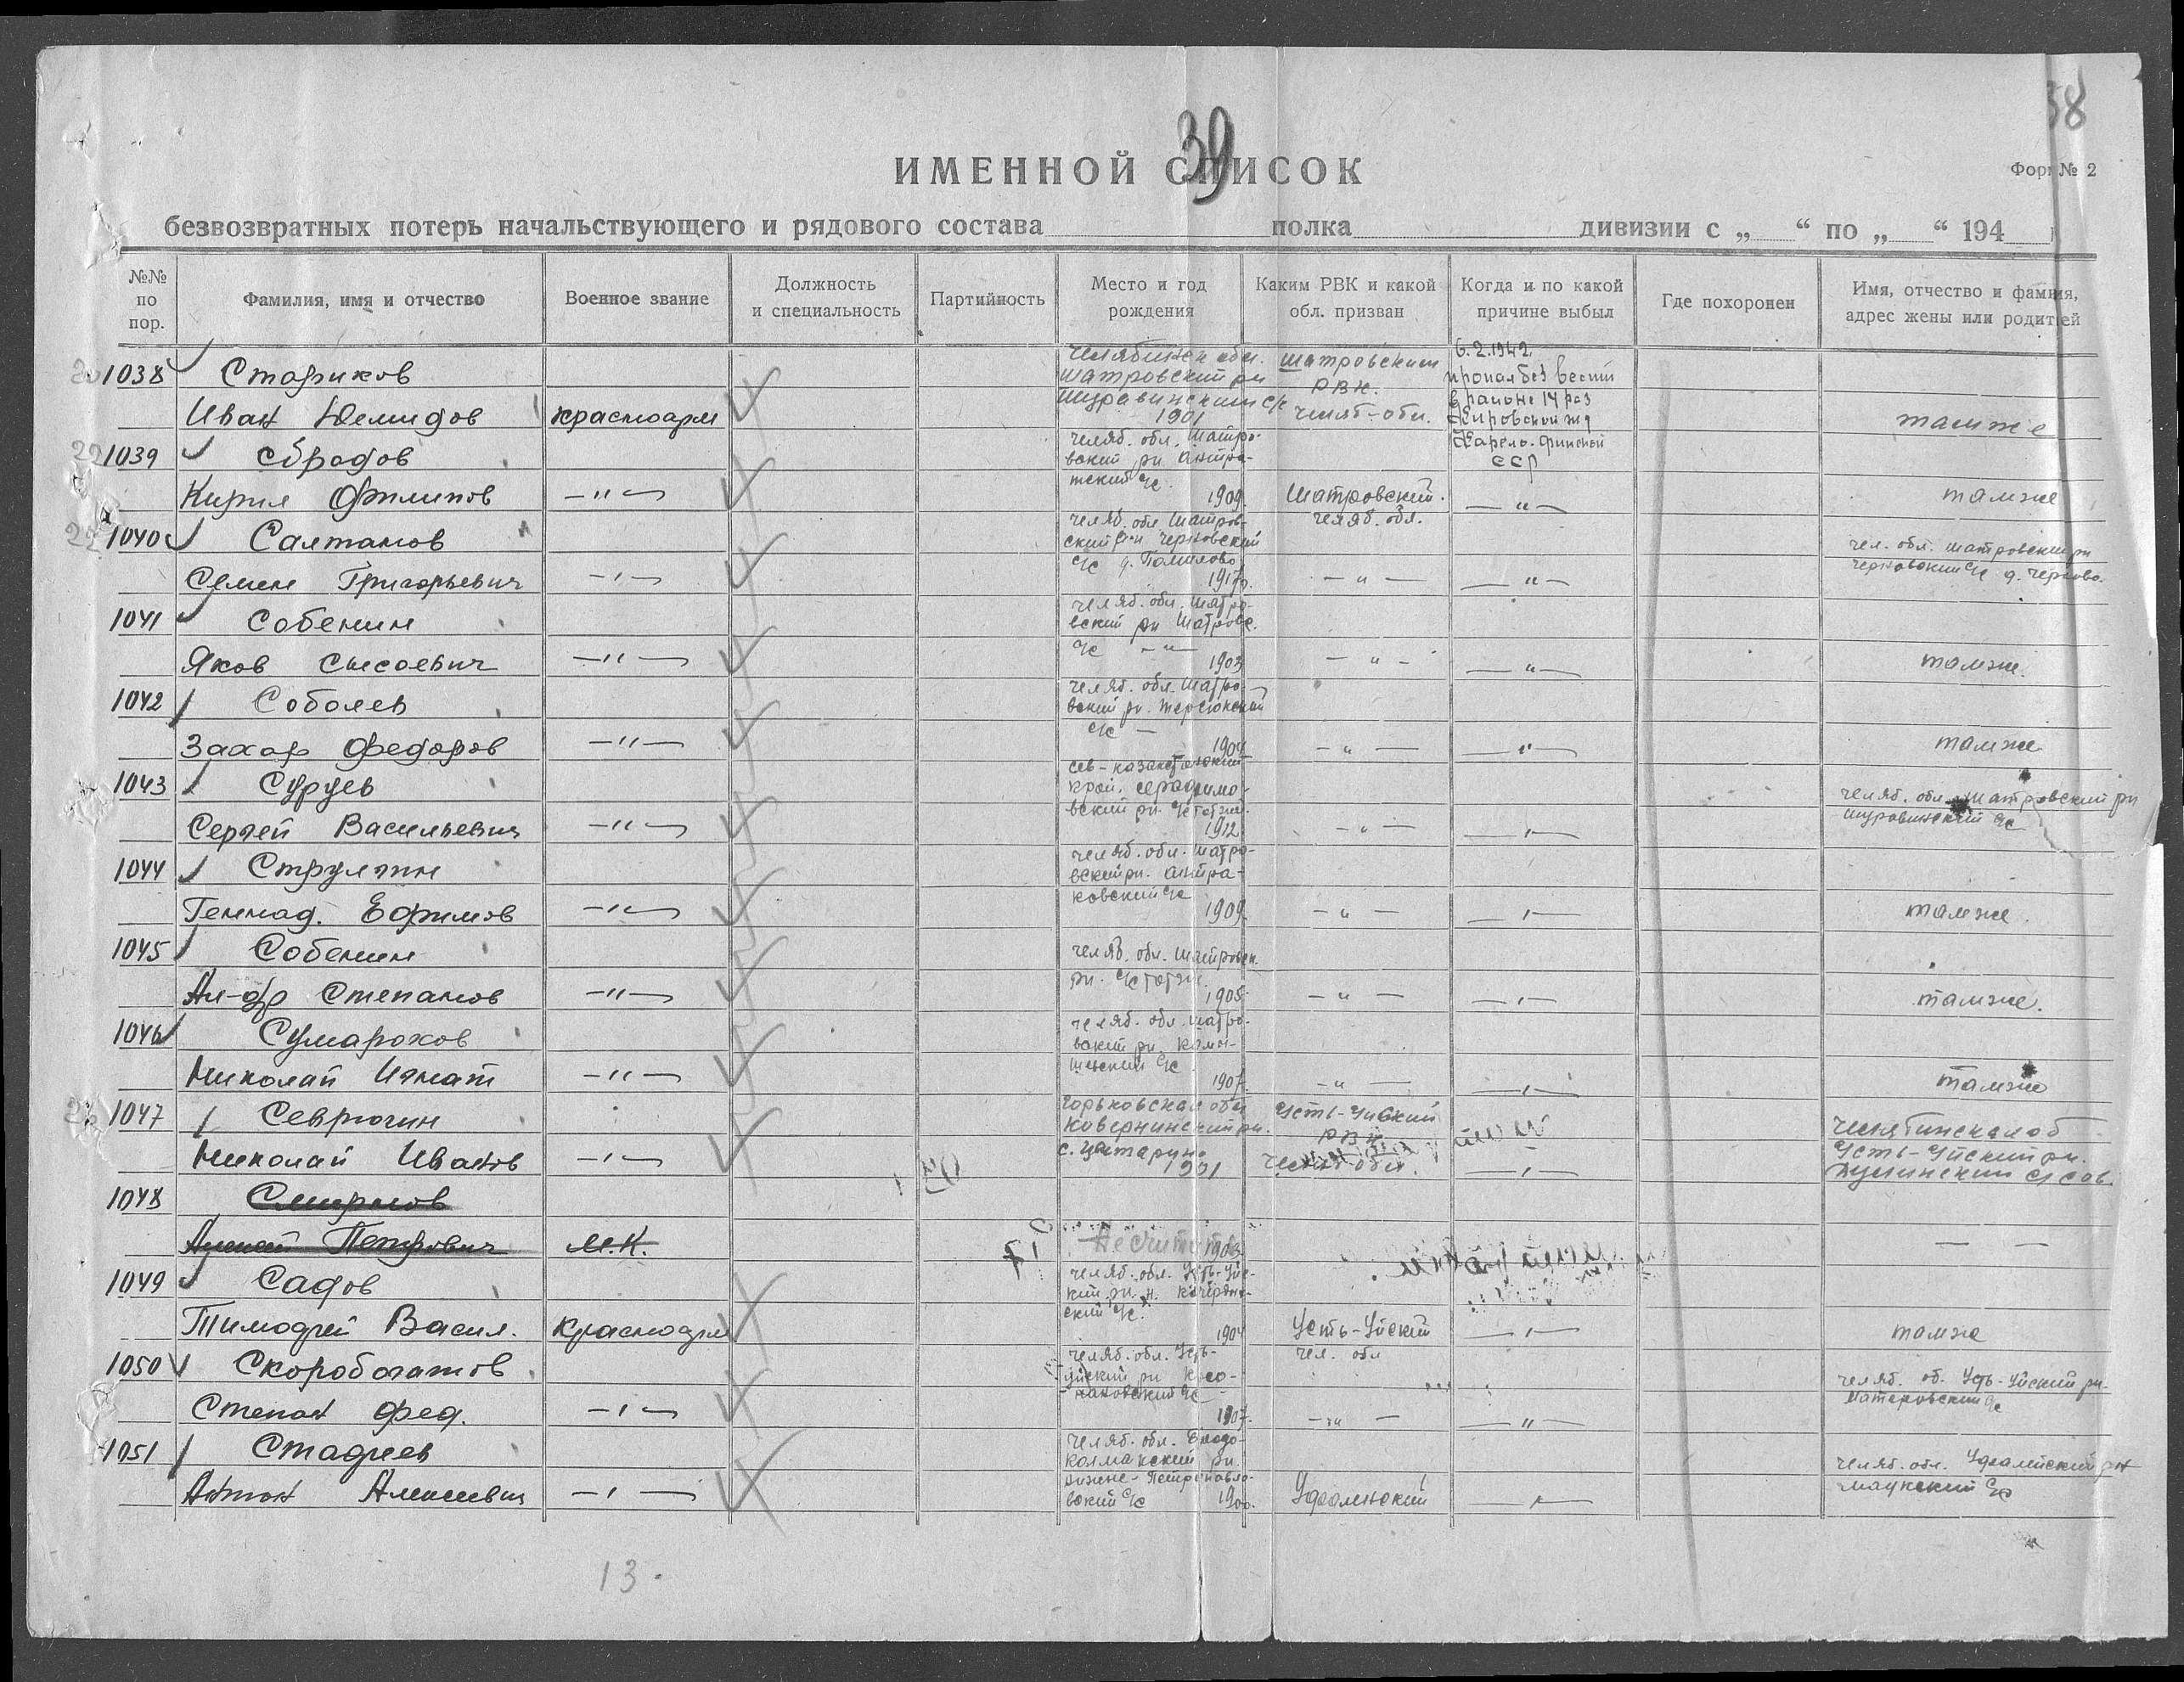 39
38
ИМЕННОЙ СПИСОК
Форм № 2
безвозвратных потерь начальствующего и рядового состава полка дивизии с „ “ по „ “ 194
№№ по пор.
Фамилия, имя и отчество
Военное звание
Должность и специальность
Партийность
Место и год рождения
Каким РВК и какой обл. призван
Когда и по какой причине выбыл
Где похоронен
Имя, отчество и фамия, адрес жены или родитей
1038 Стариков
Иван Демидов красноарм
Челябинск обл. Шатровский рн Шуравинский с/с 1901
Шатровским РВК. Челяб-обл.
6.2.1942. пропал без вести в районе 14 раз Кировской жд Карело-финской ССР
тамже
1039 Сбродов
Кирил Филипов —"—
челяб. обл. Шатровский рн с/с 1909.
Шатровский. челяб. обл.
—"—
тамже
1040 Салтанов
Семен Григорьевич —"—
челяб. обл. Шатровский рн Черновский с/с д. 1917г.
—"— —"—
чел. обл. шатровский рн черновский с/с д. Черново.
1041 Собенин
Яков Сысоевич —"—
челяб. обл. Шатровский рн Шатровс. с/с —"— 1903
—"— —"—
тамже.
1042 Соболев
Захар Федоров —"—
челяб. обл. Шатровский рн. Терсюкский с/с — 1904
—"— —"—
тамже
1043 Суруев
Сергей Васильевич —"—
сев-казахстанский край. вский рн. с/с тотже. 1912
—"— —"—
челяб. обл. Шатровский рн шуравинский с/с
1044
Геннад. Ефимов —"—
челяб. обл. Шатровский рн. с/с 1909.
—"— —"—
тамже.
1045 Собенин
Ал-др Степанов —"—
челяб. обл. Шатровск. рн. с/с тотже. 1905
—"— —"—
тамже.
1046 Сумароков
Николай Игнат —"—
челяб. обл. Шатровский рн. с/с 1907.
—"— —"—
тамже
1047 Севрюгин
Николай Иванов —"—
Горьковская обл Ковернинский рн. с. 1901
Усть-Уйский РВК Челяб обл.
—"—
Челябинская об Усть-Уйский рн. с/сов.
1048 Смирнов
Алексей Петрович М.К.
Не считать 1903
— —
1049 Садов
Тимофей Васил. Красноарм
челяб. обл. Усть-Уйский рн. н. с/с. 1904
Усть-Уйский чел. обл
—"—
тамже
1050 Скоробогатов
Степан Фед. —"—
челяб. обл. Усть-уйский рн с/с 1907.
—"— —"—
челяб. об. Усть-Уйский рн с/с
1051
Антон Алексеевич —"—
челяб. обл. рн нижне-Петропавловский с/с 1900.
Уфалейский
—"—
челяб. обл. Уфалейский р-н маукский с/с
13.